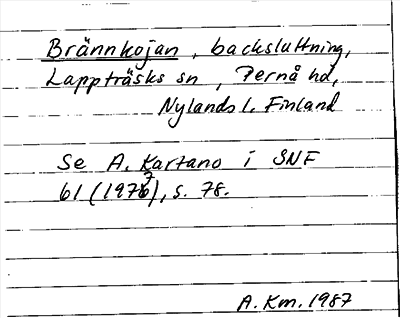 Brännkojan, backsluttning,
Lappträsks sn, Pernå hd,
Nylands l. Finland
Se A. Kartano i SNF
61 (1977), s. 78.
A. Km. 1987